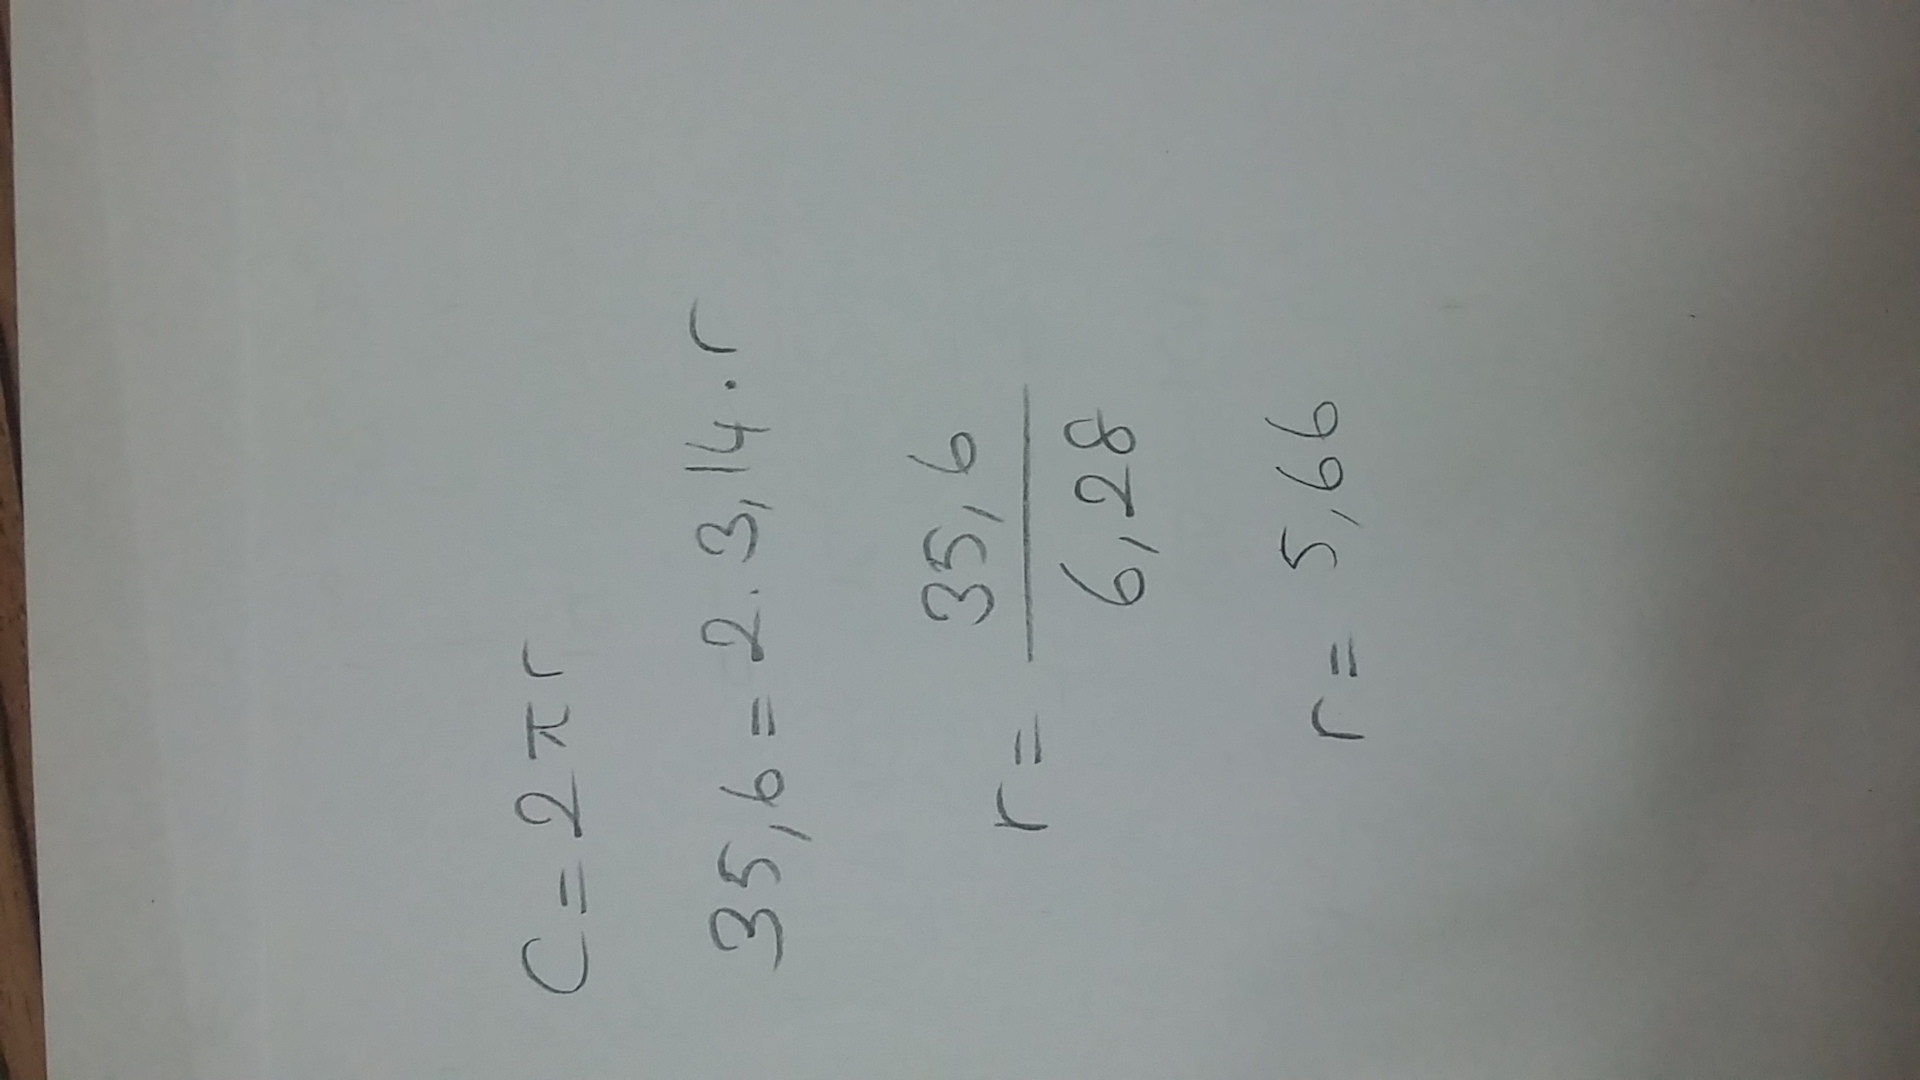 C = 2 π r
35,6 = 2 . 3,14 . r
r = 35,6 / 6,28
r = 5,66